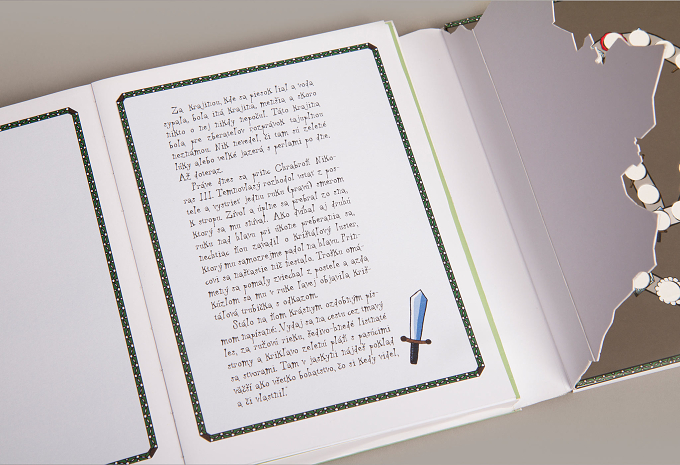 Za krajinou, kde sa piesok lial a voda
sypala, bola iná krajina, menšia a skoro
nikto o nej nikdy nepočul. Táto krajina
bola pre zberateľov rozprávok tajuplnou
neznámou. Nik nevedel, či tam sú zelené
lúky alebo veľké jazerá s perlami po dne.
Až doteraz.
Práve dnes sa princ Chrabroň Niko-
ras III. Temnovlasý rozhodol vstať z pos-
tele a vystrieť jednu ruku (pravú) smerom
k stropu. Zívol a úplne sa prebral zo sna,
ktorý sa mu sníval. Ako dvíhal aj druhú
ruku nad hlavu pri úkone preberania sa,
nechtiac ňou zavadil o krištáľový luster,
ktorý mu samozrejme padol na hlavu. Prin-
covi sa našťastie nič nestalo. Trošku omá-
mený sa pomaly zviechal z postele a azda
kúzlom sa mu v ruke ľavej objavila kriš-
táľová trubička s odkazom.
Stálo na ňom krásnym ozdobným pís-
mom napísané: „Vydaj sa na cestu cez tmavý
les, za ružovú rieku, žedivo-hnedé listnaté
stromy a krikľavo zelenú pláň s pasúcimi
sa stvorami. Tam v jaskyni nájdeš poklad
väčší ako všetko bohatstvo, čo si kedy videl,
a či vlastnil."